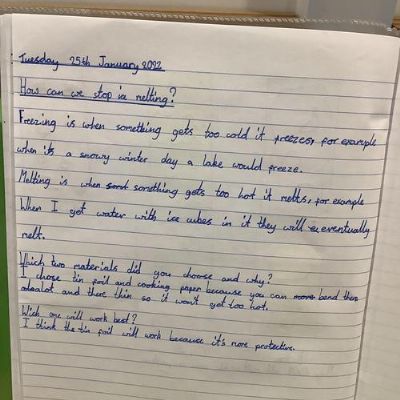 Tuesday 25th January 2022
How can we stop ice melting?
Freezing is when something gets too cold it freezes, for example
when it's a snowy winter day a lake would freeze.
Melting is when something gets too hot it melts, for example
When I get water with ice cubes in it they will eventually
melt.
Which two materials did you choose and why?
I chose tin foil and cooking paper because you can bend them
alot and there thin so it won't get too hot.
Wich one will work best?
I think the tin foil will work because it's more protective.